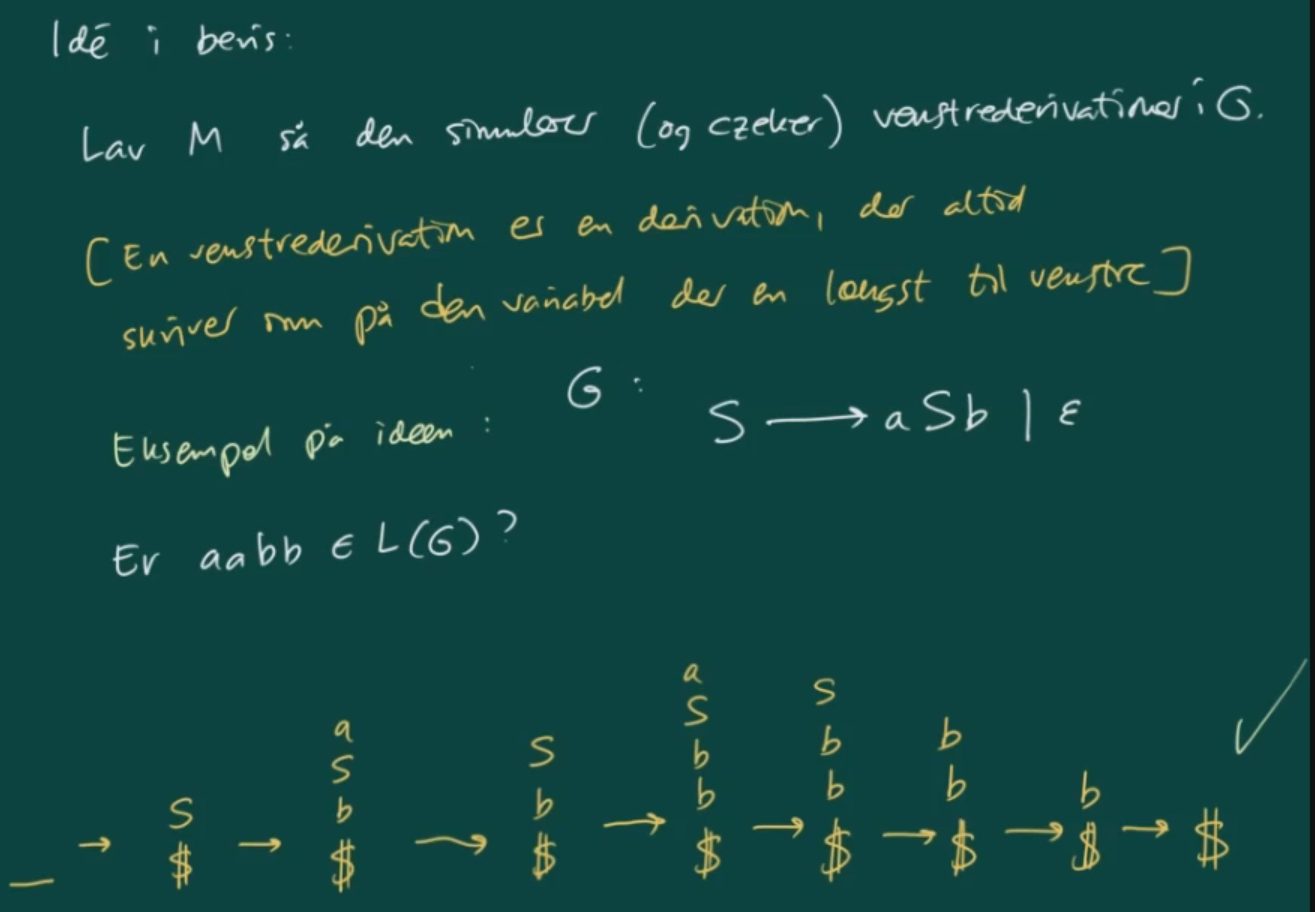 Idé i bevis:
Lav M så den simulerer (og czeker) venstrederivationer i G.
[En venstrederivation er en derivation, der altid
skriver om på den variabel der en længst til venstre]
G:
S → aSb | ε
Eksempel på ideen:
Er aabb ∈ L(G)?
_ → S $ → a S b $ → S b $ → a S b b $ → S b b $ → b b $ → b $ → $ ✓